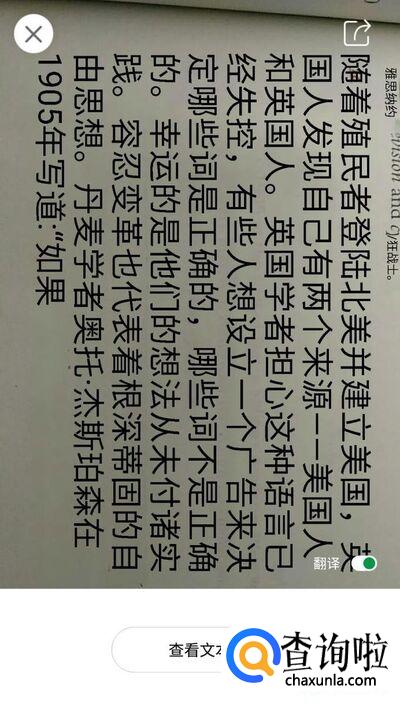 雅思纳约 and 狂战士。
随着殖民者登陆北美并建立美国，英
国人发现自己有两个来源——美国人
和英国人。英国学者担心这种语言已
经失控，有些人想设立一个广告来决
定哪些词是正确的，哪些词不是正确
的。幸运的是他们的想法从未付诸实
践。容忍变革也代表着根深蒂固的自
由思想。丹麦学者奥托·杰斯珀森在
1905年写道:“如果
翻译
查看文
查询啦
chaxunla.com